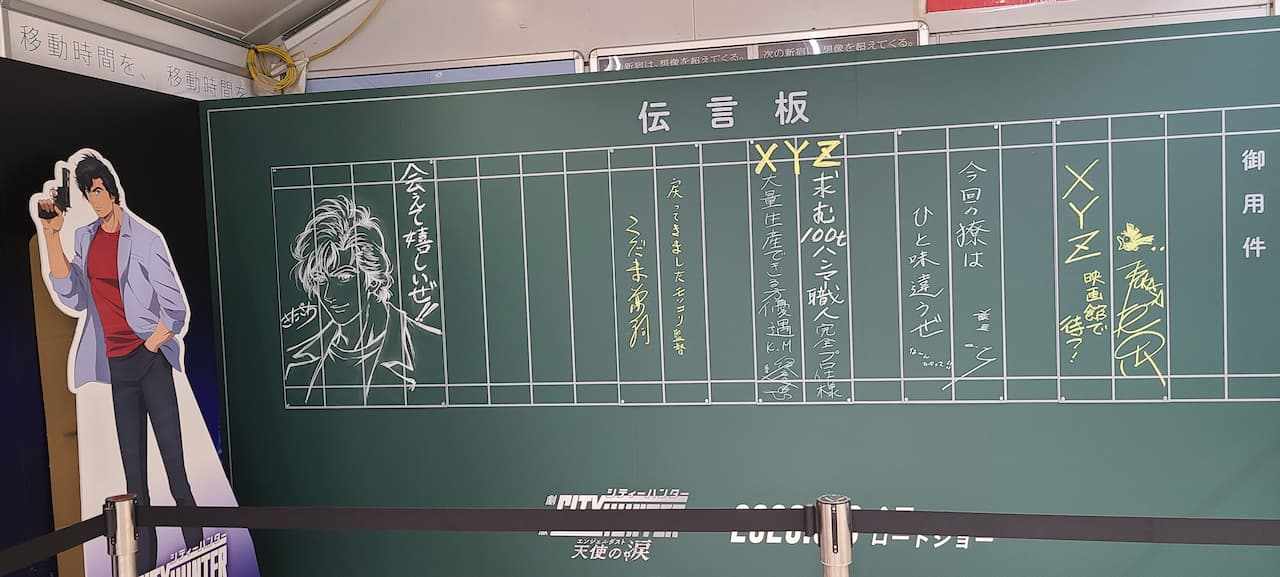 移動時間を、 移動時間を
新宿は、想像を超えてくる。
次の新宿は、想像を超えてくる。
伝言板
御用件
XYZ
映画館で
待つ!
今回の獠は
ひと味違うぜ
XYZ
求む 100tハンマー職人 完全プロ仕様
大量生産できる方優遇 K.M
戻ってきましたモッコリ監督
こだま兼嗣
会えて嬉しいぜ!!
シティーハンター
CITY HUNTER
エンジェルダスト
天使の涙
ロードショー
シティーハンター
CITY HUNTER